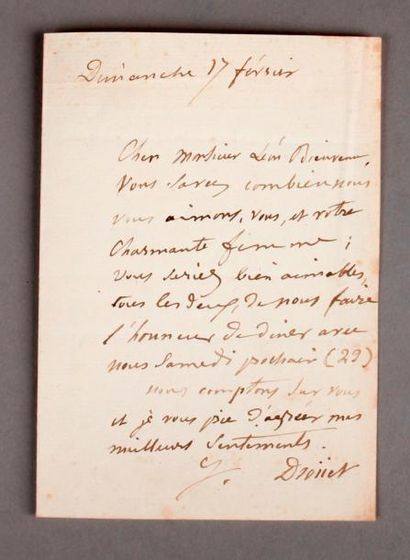 Dimanche 17 février
Cher Monsieur Léon Bienvenu,
Vous savez combien nous
vous aimons, vous, et votre
charmante femme ;
vous seriez bien aimables,
tous les deux, de nous faire
l'honneur de diner avec
nous samedi pochain (23)
nous comptons sur vous
et je vous pie d'agréer mes
meilleurs sentiments.
Droüet